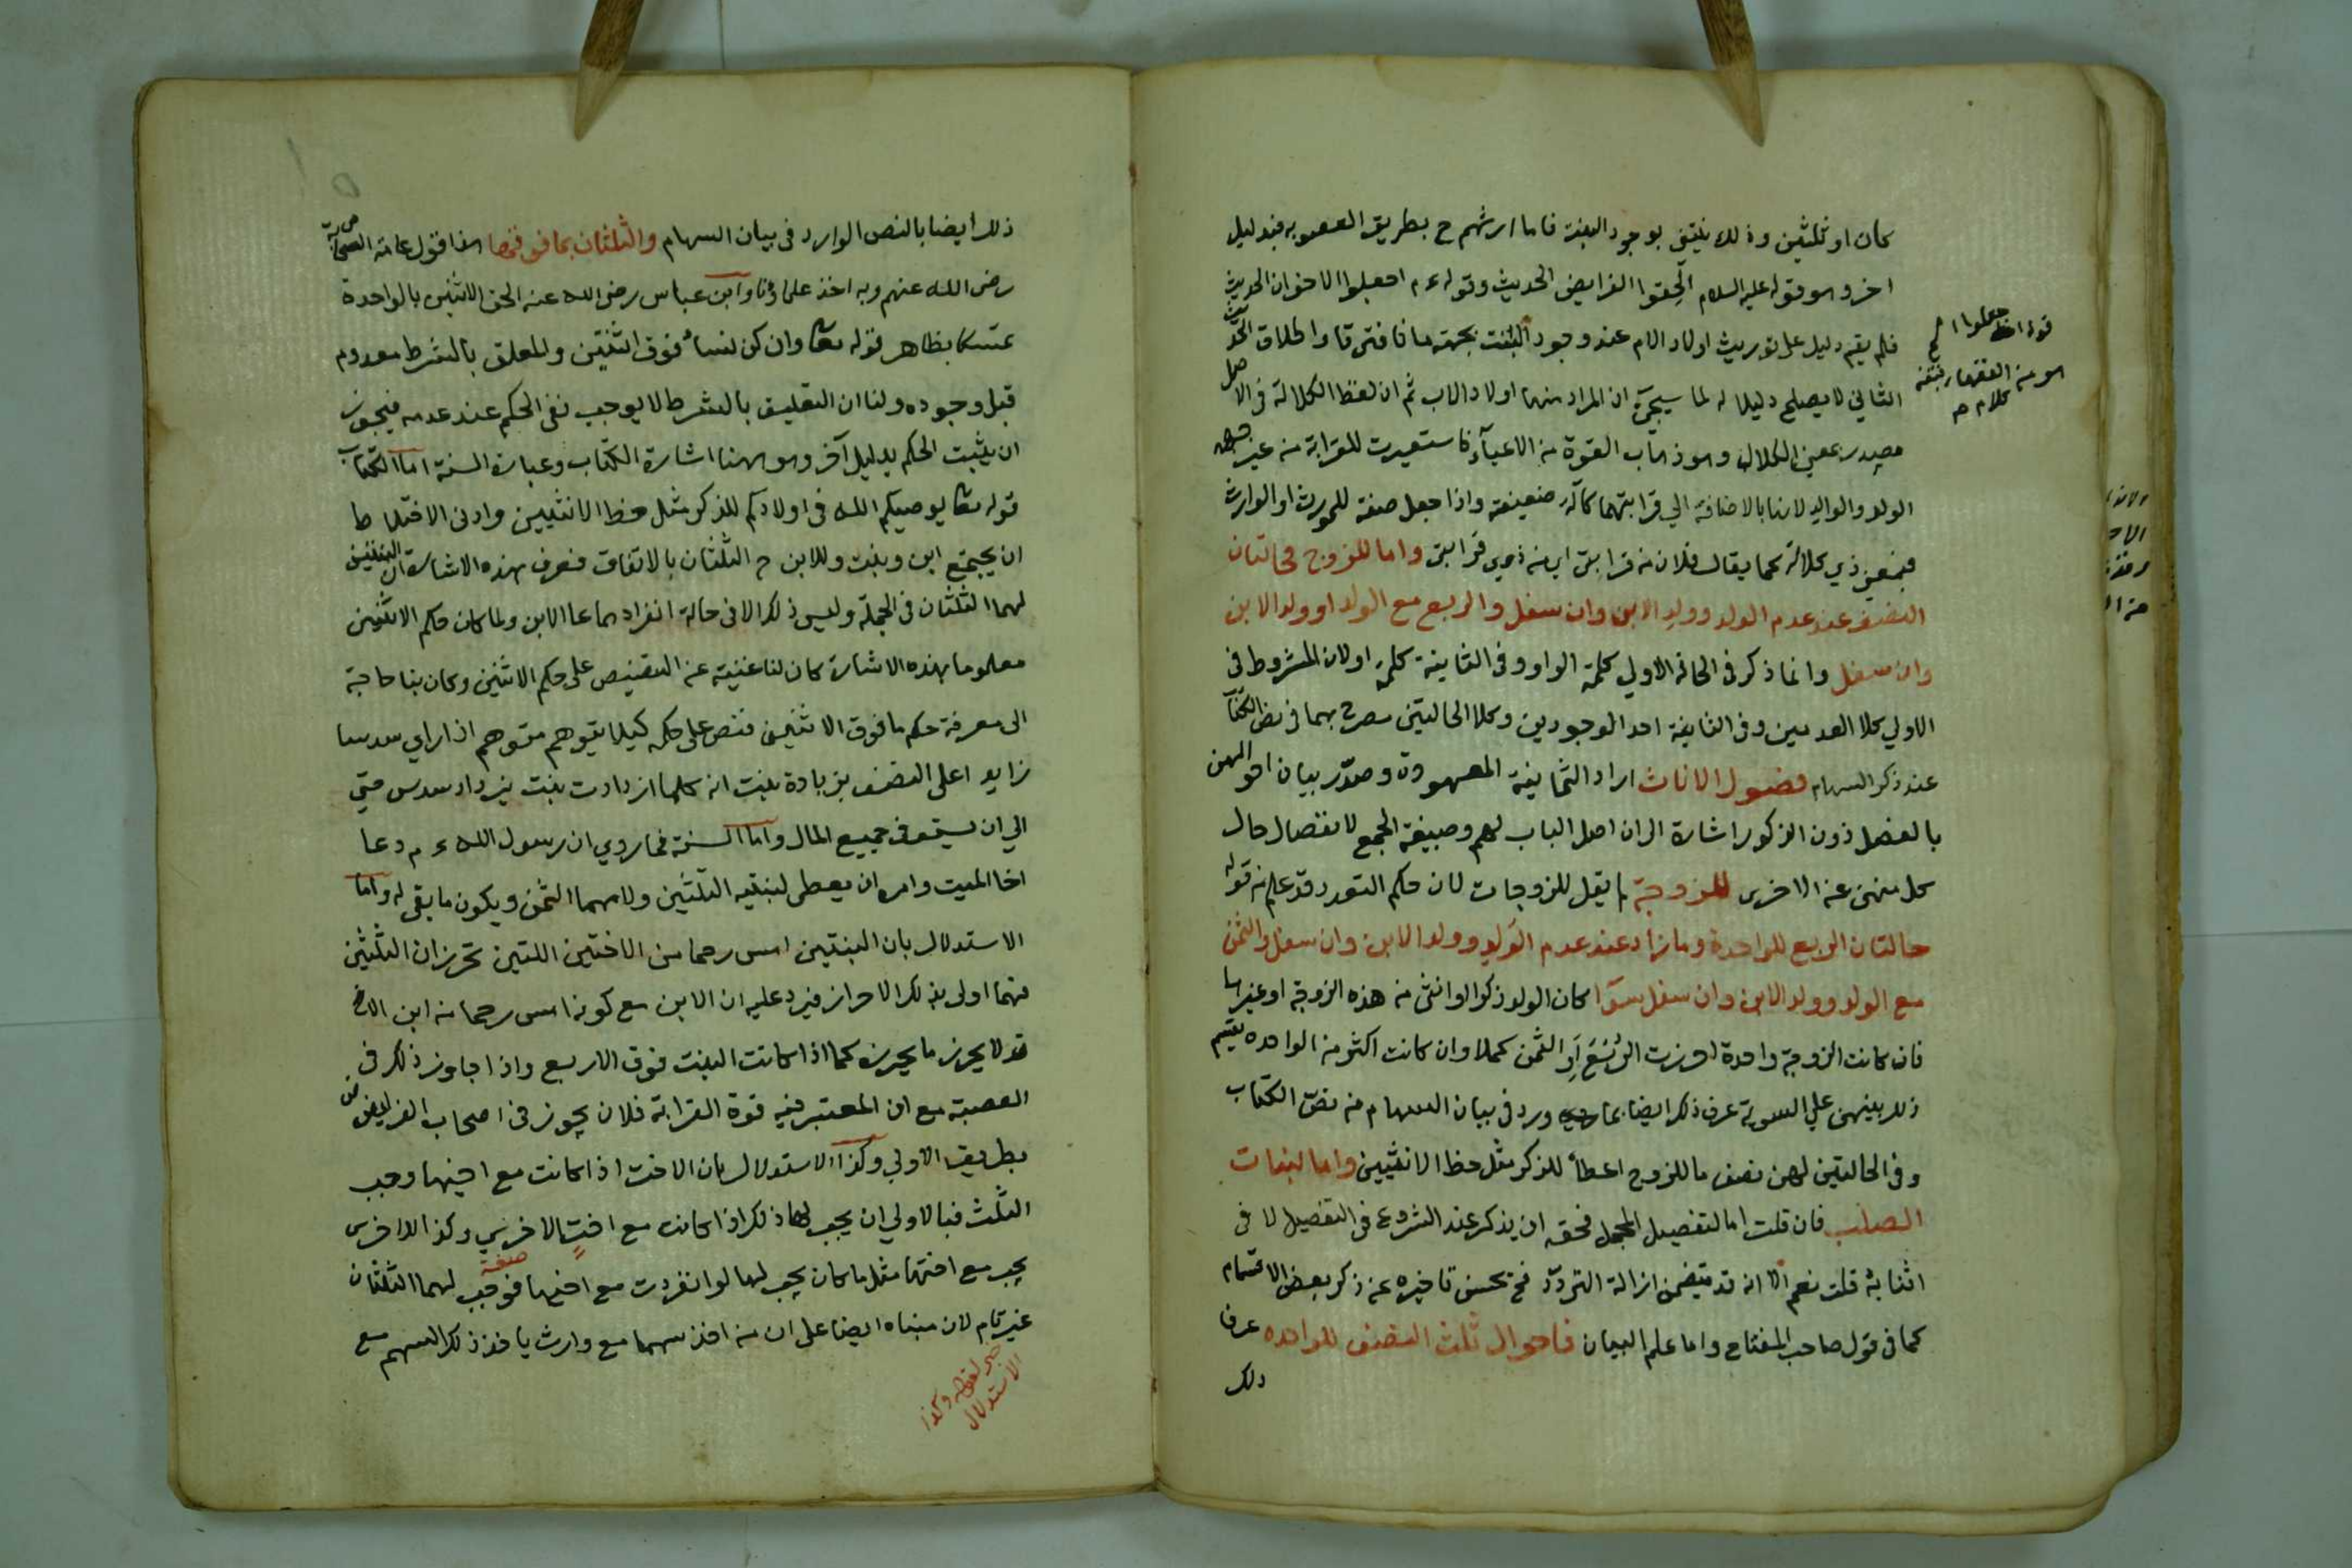 كان او ثلثين وذلك ينتفى بوجود البنت فاما ارثهم ح بطريق العصوبه فبدليل
اخر وهو قوله عليه السلام الحقوا الفرايض الحديث وقوله ءم اجعلوا الاخوان الحديث
فلم يقم دليل على توريث اولاد الام عند وجود البنت بجهة ما فافترقا واطلاق
الثاني لا يصلح دليلا له لما سيجئ ان المراد منها اولاد الاب ثم ان لفظ الكلالة فى الاصل
مصدر بمعنى الكلال وهو ذهاب القوة من الاعيآء فاستعيرت للقرابة من غير جهة
الولد والوالد لانها بالاضافة الي قرابتهما كآلة ضعيفة واذا جعل صفة للمورث او الوارث
فبمعنى ذي كلالة كما يقال فلان من قرابتى اي من ذوي قرابتى واما للزوج فحالتان
النصف عند عدم الولد وولد الابن وان سفل والربع مع الولد او ولد الابن
وان سفل وانما ذكر فى الحالة الاولي كلمة الواو وفى الثانية كلمة او لان المشروط فى
الاولي كلا العدمين وفى الثانية احد الوجودين وكلا الحالتين مصرح بهما فى نص الكتاب
عند ذكر السهام فصول الاناث اراد الثمانية المعهودة وصدّر بيان احوالهن
بالفصل دون الذكور اشارة الى ان اصل الباب لهم وصيغة الجمع لانفصال حال
كل منهن عن الاخرى للزوجة لم يقل للزوجات لان حكم التعدد قد علم من قوله
حالتان الربع للواحدة وما زاد عند عدم الولد وولد الابن وان سفل والثمن
مع الولد وولد الابن وان سفل سوآ كان الولد ذكرا او انثى من هذه الزوجة او غيرها
فان كانت الزوجة واحدة احرزت الربع او الثمن كملا وان كانت اكثر من الواحده يقسم
ذلك بينهن علي السوية عرف ذلك ايضا بما ورد فى بيان السهام من نص الكتاب
وفى الحالتين لهن نصف ما للزوج اعطاء للذكر مثل حظ الانثيين واما لبنات
الصلب فان قلت اما لتفصيل المجمل فحقه ان يذكر عند الشروع فى التفصيل لا فى
اثنائه قلت نعم الا انه قد يتضمن ازالة التردد فح يحسن تاخيره عن ذكر بعض الاقسام
كما فى قول صاحب المفتاح واما علم البيان فاحوال ثلث النصف للواحده عرف
ذلك
قوله اجعلوا الخ
هو من الفقهاء
كلامهم
ذلك ايضا بالنص الوارد فى بيان السهام والثلثان بما فوقها هذا قول عامة الصحابة
رضى الله عنهم وبه اخذ علماؤنا وابن عباس رضى الله عنه الحق الاثنين بالواحدة
تمسكا بظاهر قوله تعا وان كن نساء فوق اثنتين والمعلق بالشرط معدوم
قبل وجوده ولنا ان التعليق بالشرط لا يوجب نفى الحكم عند عدمه فيجوز
ان يثبت الحكم بدليل آخر وهو ههنا اشارة الكتاب وعبارة السنة اما الكتاب
قوله تعا يوصيكم الله فى اولادكم للذكر مثل حظ الانثيين وادنى الاختلاط
ان يجتمع ابن وبنت وللابن ح الثلثان بالاتفاق فعرف بهذه الاشارة ان البنتين
لهما الثلثان فى الجملة وليس ذلك الا فى حالة انفرادهما عا الابن ولما كان حكم الاثنين
معلوما بهذه الاشارة كان لنا غنية عن التنصيص على حكم الاثنين وكان بنا حاجة
الى معرفة حكم ما فوق الاثنين فنص على حكمه كيلا يتوهم متوهم اذا راي سدسا
زايد اعلى النصف بزيادة بنت انه كلما ازدادت بنت يزداد سدس حتي
الي ان يستوفى جميع المال واما السنة فما روي ان رسول الله ءم دعا
اخا الميت وامره ان يعطى لبنتيه الثلثين ولامهما الثمن ويكون ما بقى له واما
الاستدلال بان البنتين امس رحما من الاختين اللتين تحرزان الثلثين
فهما اولى بذلك الاحراز فيرد عليه ان الابن مع كونه امس رحما من ابن الاخ
قد لا يحرز ما يحرزه كما اذا كانت البنت فوق الاربع واذا جاوز ذلك فى
العصبة مع ان المعتبر فيه قوة القرابة فلان يجوز فى اصحاب الفرايض
بطريق الاولي وكذا الاستدلال بان الاخت اذا كانت مع اخيها وجب
الثلث فبالاولي ان يجب لها ذلك اذا كانت مع اخت الاخرى وكذا الاخرى
يجب مع اختها مثل ما كان يجب لها لو انفردت مع اخيها فوجب لهما الثلثان
غير تام لان مبناه ايضا على ان من اخذ سهما مع وارث ياخذ ذلك السهم مع
صفة
خبر لقوله وكذا
الاستدلال